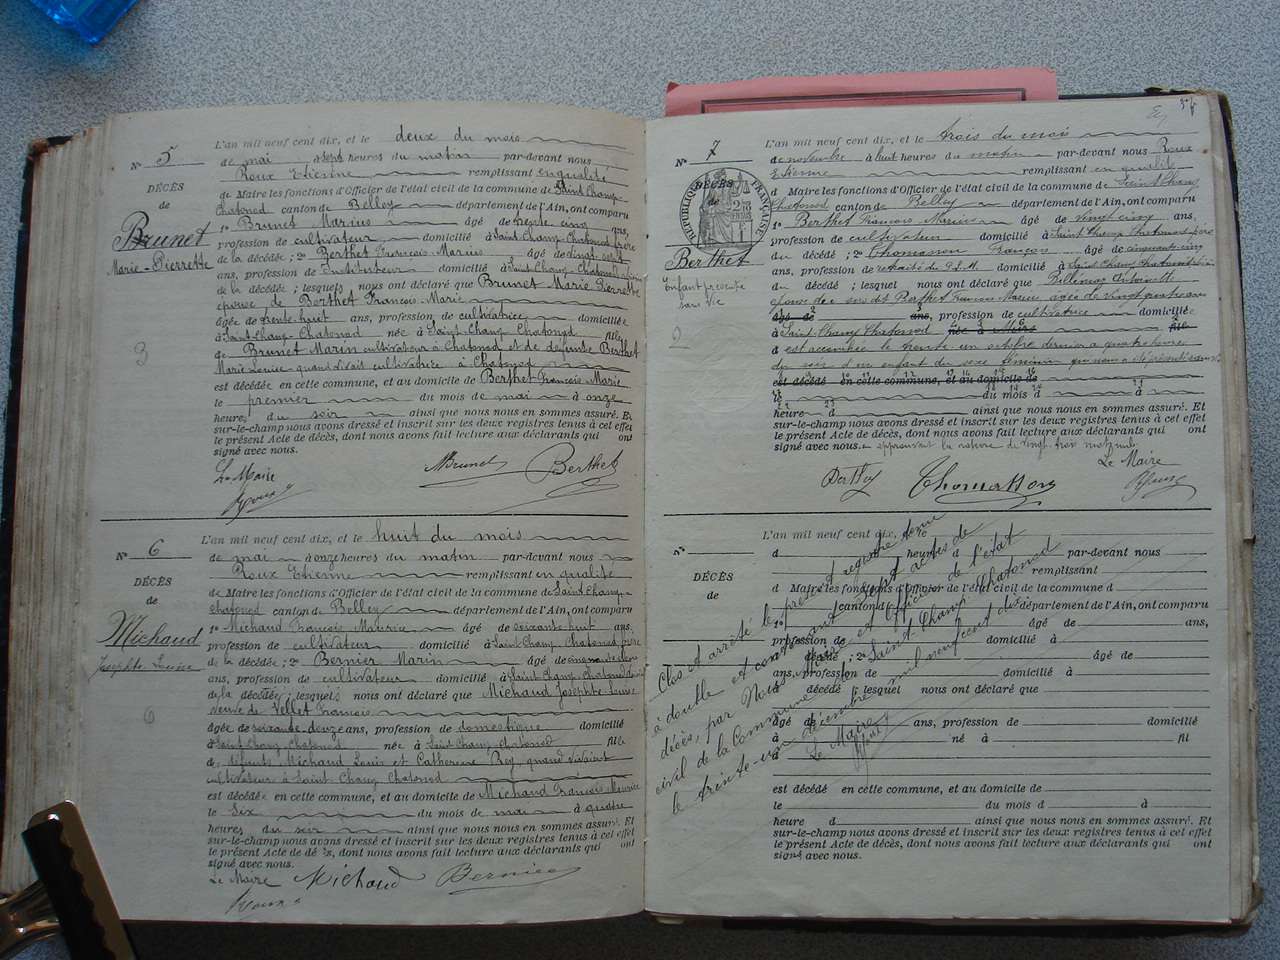 L'an mil neuf cent dix, et le deux du mois
N° 5
de mai sept heures du matin par-devant nous
Roux Etienne remplissant en qualité
DÉCÈS
de Maire les fonctions d'Officier de l'état civil de la commune de Saint-Champ-
de
Chatonod canton de Belley département de l'Ain, ont comparu
1° Brunet Marius âgé de trente cinq ans,
Brunet
Marie-Pierrette
profession de cultivateur domicilié à Saint-Champ-Chatonod frère
de la décédée ; 2° Berthet François Marius âgé de vingt-sept
ans, profession de Instituteur domicilié à Saint-Champ-Chatonod
de la décédée ; lesquels nous ont déclaré que Brunet Marie Pierrette
épouse de Berthet François-Marie
âgée de trente-huit ans, profession de cultivatrice domiciliée
à Saint-Champ-Chatonod née à Saint-Champ-Chatonod fille
de Brunet Marin cultivateur à Chatonod et de défunte Berthet
Marie Louise quand vivait cultivatrice à Chatonod
est décédée en cette commune, et au domicile de Berthet François-Marie
le premier du mois de mai à onze
heures du soir ainsi que nous nous en sommes assuré. Et
sur-le-champ nous avons dressé et inscrit sur les deux registres tenus à cet effet
le présent Acte de décès, dont nous avons fait lecture aux déclarants qui ont
signé avec nous.
Le Maire
Roux
Brunet
Berthet
L'an mil neuf cent dix, et le huit du mois
N° 6
de mai à onze heures du matin par-devant nous
Roux Etienne remplissant en qualité
DÉCÈS
de Maire les fonctions d'Officier de l'état civil de la commune de Saint-Champ-
de
Chatonod canton de Belley département de l'Ain, ont comparu
1° Michaud François Maurice âgé de soixante-huit ans,
Michaud
Josephte Louise
profession de cultivateur domicilié à Saint-Champ-Chatonod, frère
de la décédée ; 2° Bernier Marin âgé de
ans, profession de cultivateur domicilié à Saint-Champ-Chatonod
de la décédée ; lesquels nous ont déclaré que Michaud Josephte Louise
veuve de Vellet François
âgée de soixante-douze ans, profession de domestique domicilié
à Saint-Champ-Chatonod née à Saint-Champ-Chatonod fille
de défunts Michaud Louis et Catherine Rey quand vivaient
cultivateurs à Saint-Champ-Chatonod
est décédée en cette commune, et au domicile de Michaud François Maurice
le six du mois de mai à quatre
heures du soir ainsi que nous nous en sommes assuré. Et
sur-le-champ nous avons dressé et inscrit sur les deux registres tenus à cet effet
le présent Acte de décès, dont nous avons fait lecture aux déclarants qui ont
signé avec nous.
Le Maire
Roux
Michaud
Bernier
L'an mil neuf cent dix, et le trois du mois
N° 7
de novembre à huit heures du matin par-devant nous Roux
Etienne remplissant en qualité
DÉCÈS
de
RÉPUBLIQUE FRANÇAISE
d Maire les fonctions d'Officier de l'état civil de la commune de Saint-Champ
Chatonod canton de Belley département de l'Ain, ont comparu
1° Berthet François Marius âgé de vingt cinq ans,
profession de cultivateur domicilié à Saint-Champ-Chatonod père
Berthet
enfant présenté
sans vie
du décédé ; 2° Thomasson François âgé de cinquante-cinq
ans, profession de retraité du P.L.M. domicilié à Saint-Champ-Chatonod
du décédé ; lesquel nous ont déclaré que Billemaz Antoinette
épouse de sus dit Berthet François Marius âgée de vingt quatre ans
âgé de ans, profession de cultivatrice domiciliée
à Saint-Champ-Chatonod née à fille
d est accouchée le trente un octobre dernier à quatre heures
du soir d'un enfant du sexe féminin
est décédé en cette commune, et au domicile de
le du mois d à
heure d ainsi que nous nous en sommes assuré. Et
sur-le-champ nous avons dressé et inscrit sur les deux registres tenus à cet effet
le présent Acte de décès, dont nous avons fait lecture aux déclarants qui ont
signé avec nous. approuvant la rature de vingt-trois mots nuls
Le Maire
Roux
Berthet
Thomasson
L'an mil neuf cent dix, et le
N°
d heures d par-devant nous
remplissant
DÉCÈS
d Maire les fonctions d'Officier de l'état civil de la commune d
de
canton d département de l'Ain, ont comparu
1° âgé de ans,
profession de domicilié à
décédé ; 2° âgé de
ans, profession de domicilié à
d décédé ; lesquel nous ont déclaré que
âgé de ans, profession de domicilié
à né à fil
d
est décédé en cette commune, et au domicile de
le du mois d à
heure d ainsi que nous nous en sommes assuré. Et
sur-le-champ nous avons dressé et inscrit sur les deux registres tenus à cet effet
le présent Acte de décès, dont nous avons fait lecture aux déclarants qui ont
signé avec nous.
Clos et arrêté le présent registre tenu
à double et contenant sept actes de
décès, par Nous Maire et Officier de l'état
civil de la Commune de Saint-Champ-Chatonod
le trente-un décembre mil neuf cent dix
Le Maire
Roux